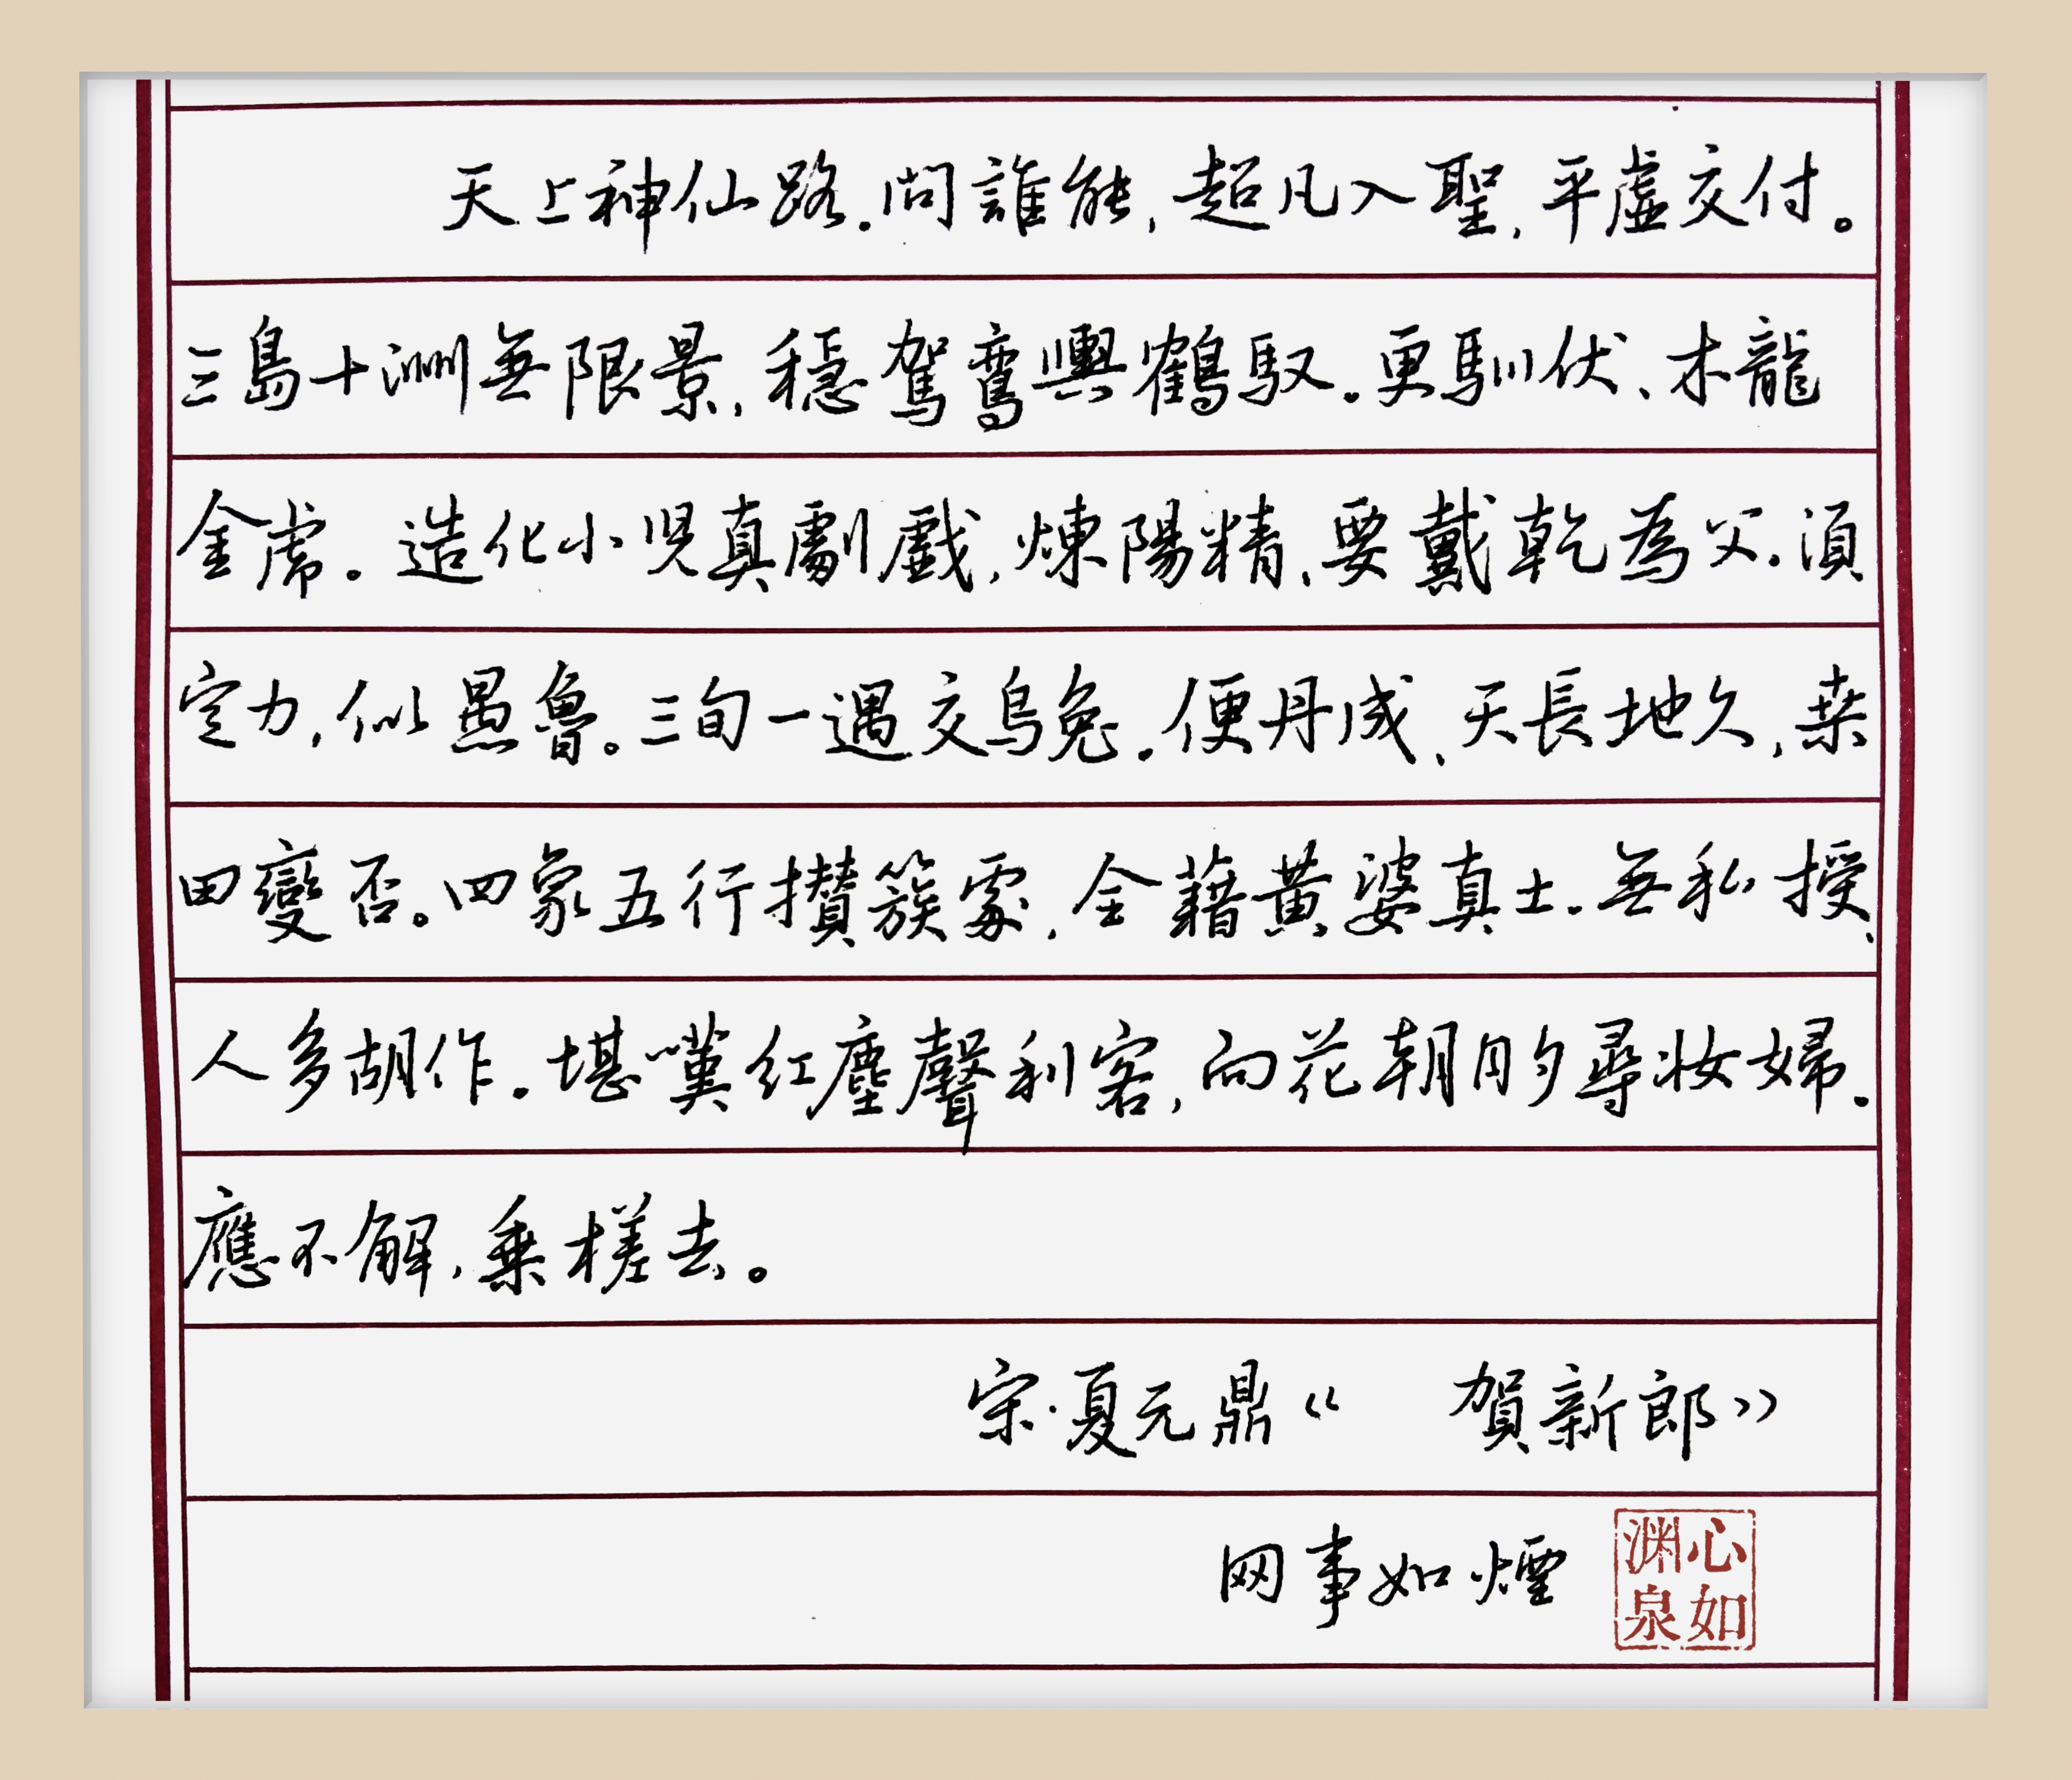 天上神仙路.问誰能,超凡入聖,平虛交付。
三島十洲無限景,穩駕鸞輿鶴馭.更馴伏、木龍
金虎。造化小児真劇戲,煉陽精、要戴乾為父.須
定力,似愚魯。三旬一遇交烏兔.便丹成、天長地久,桒
田變否。四象五行攢簇處,全藉黃婆真土.無私授、
人多胡作.堪嘆红塵聲利客,向花朝月夕尋妝婦.
應不解,乘槎去。
宋·夏元鼎《 賀新郎》
网事如煙
心如渊泉